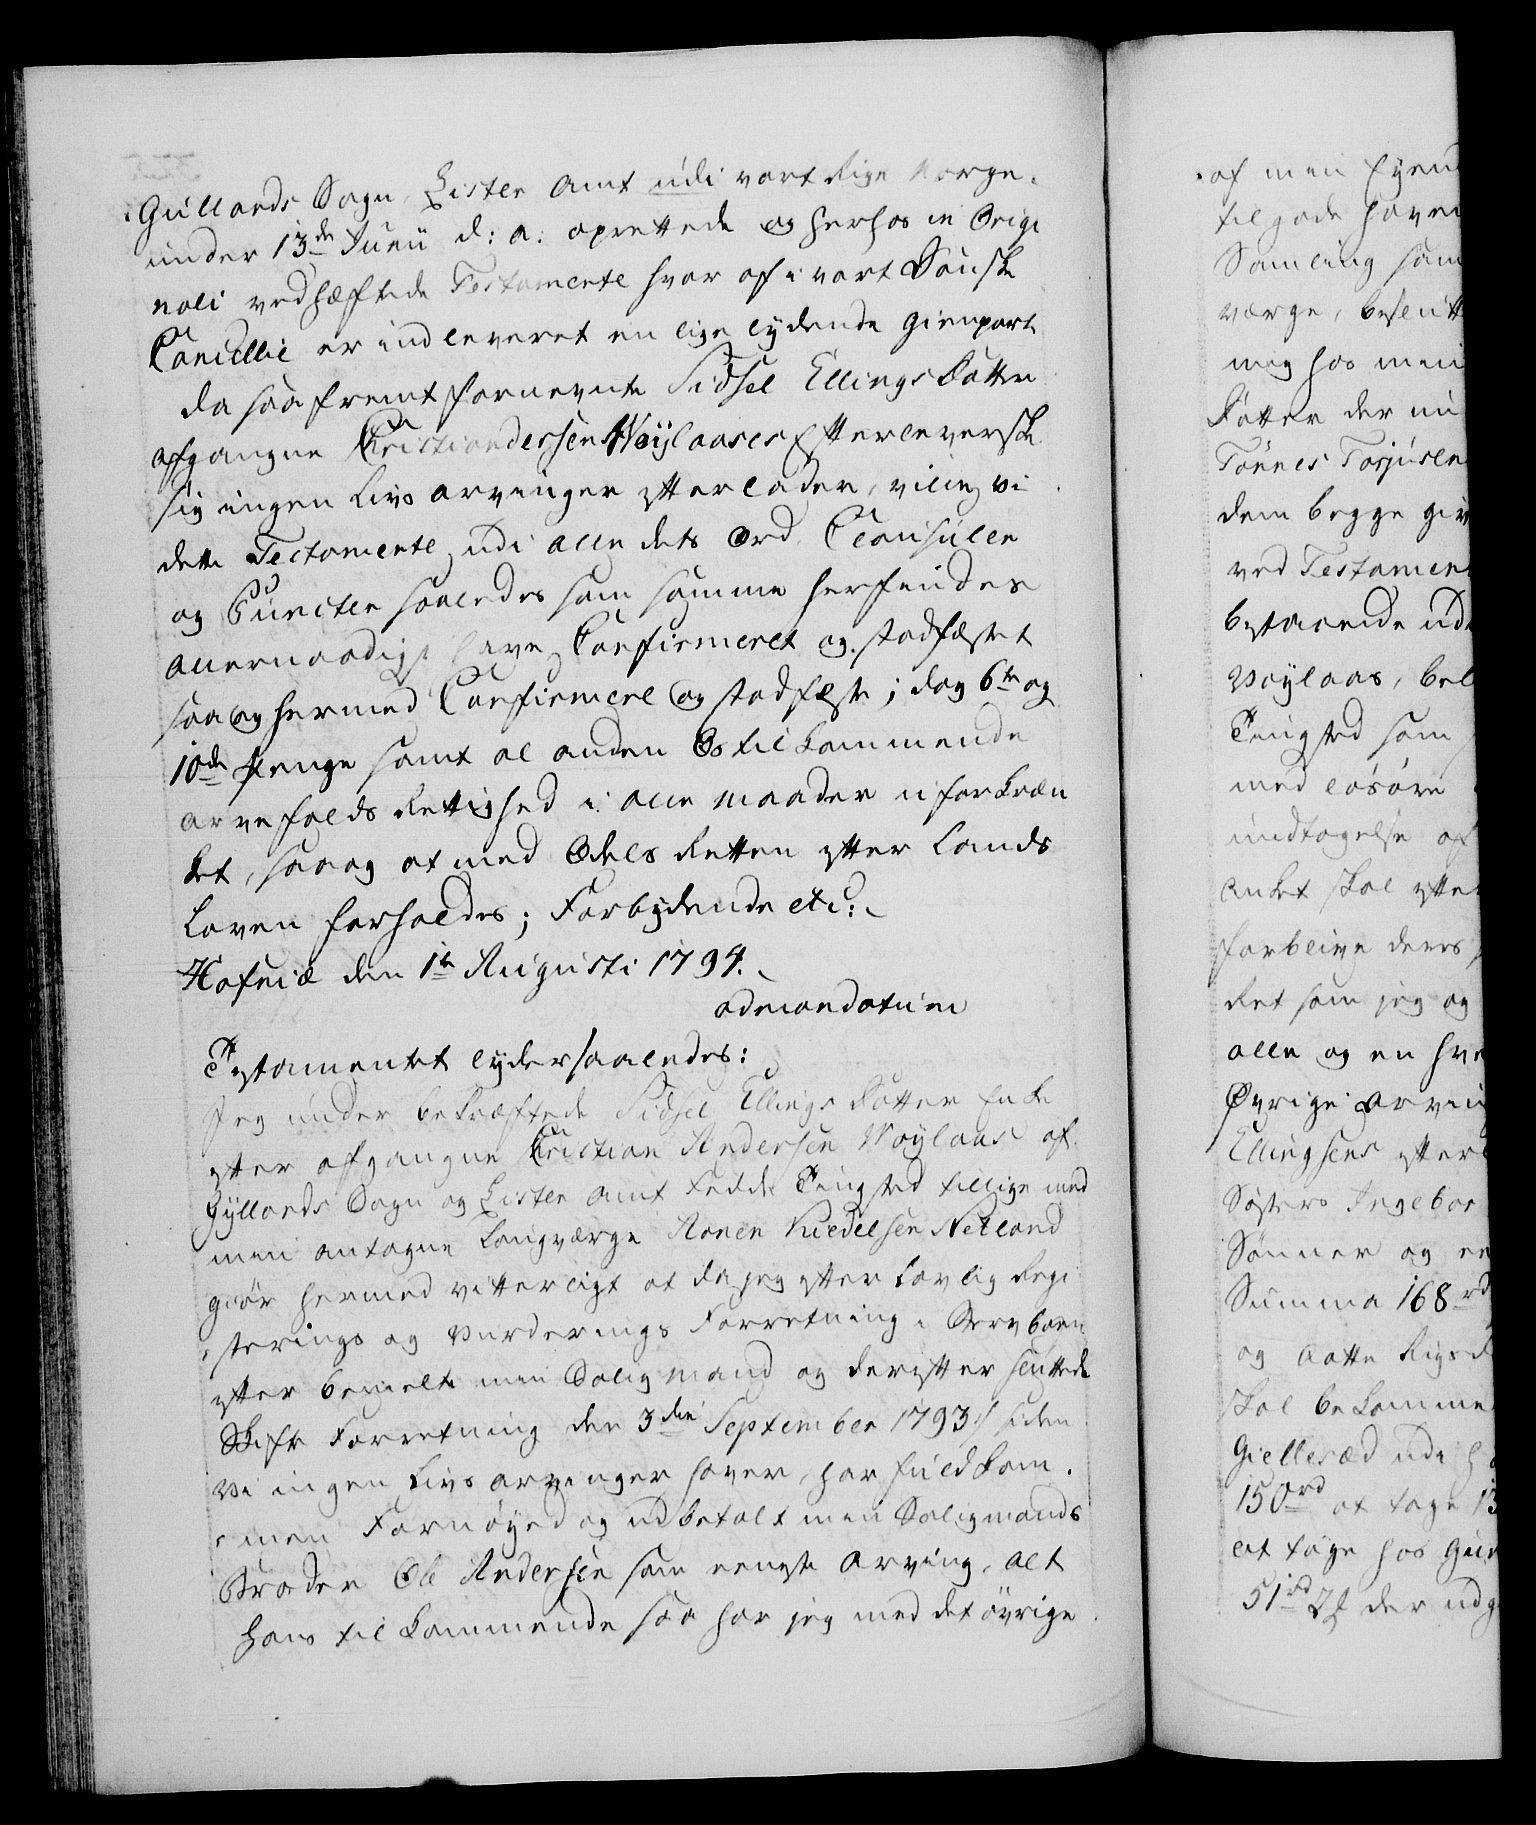 Gullands Sogn, Lister Amt udi vort Rige Norge.
under 13de Junii d: a: oprettede og herhos in Origi
nali vedhæftede Testamente hvor af i vort Danske
Cancellie er indleveret en lige lydende Gienpart
da saafremt fornevnte Sidsel Ellings Datter
afgangne Christiandersen Woylaases Efterleverske
sig ingen Livs arvinger efterlader, ville vi
dette Testamente udi alle dets Ord, Clausuler
og Puncter saaledes som samme herfindes
allernaadigst have Confirmeret og stadfæstet
saa og hermed Confirmere og stadfæste; dog 6te og
10de Penge samt al anden Os tilkommende
arvefalds Rettighed i alle maader uforkræn
ket, saa og at med Odels Retten efter Lands
Loven forholdes; Forbydende etc:
Hafniæ den 1te Augusti 1794.
ad mandatum
Testamentet lyder saaledes:
Jeg under bekræftede Sidsel Ellings Datter Enke
efter afgangne Cristian Andersen Woylaas af
Gyllands Sogn og Lister Amt Fedde Tingsted tillige med
min antagne Laugværge Aanen Kiedelsen Netland
giör hermed vitterligt at da jeg efter Lovlig Regi
sterings og Vurderings Forretning i Sterv boen
efter bemelte min Salig Mand og derefter sluttede
Skifte Forretning den 3die September 1793 siden
vi ingen Livs arvinger haver, har fuldkom
men Fornøyed og udbetalt min Salig mands
Broder Ole Andersen som eeneste Arving, alt
hans tilkommende saa har jeg med det övrige
af min Eyend
til gode haven
Samling sam
værge, beslutt
mig hos min
Datter der nu
Tönnes Torjusen
dem begge giv
ved Testamen
bestaaende ud
Woylaas, bel
Tingsted som
med løsøre
undtagelse af
anket skal efter
forblive deres
Ret som jeg og
alle og en hve
Øvrige arvin
Ellingsens efter
Søsters Ingebor
Sønner og en
Summa 168 rd
og Aatte Rigsd
skal bekomme
Giellesæd udi H
150 rd at tage 13
at tage hos Gun
51 rd 2 ß der udg